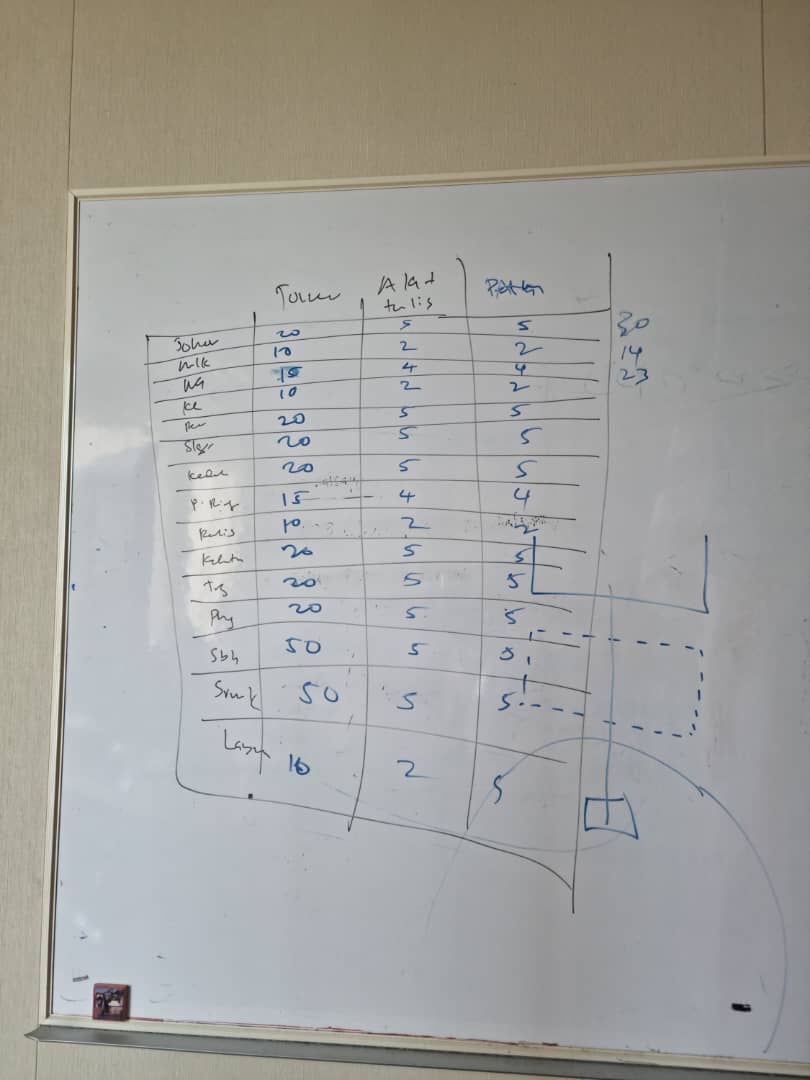 Toner Alat
tulis
Johor 20 5 5 30
MLK 10 2 2 14
NS 15 4 4 23
KL 10 2 2
20 5 5
Slgr 20 5 5
Kedah 20 5 5
P. Ring 15 4 4
Perlis 10 2 2
Kelntn 20 5 5
Trg 20 5 5
Phg 20 5 5
Sbh 50 5 5
Srwk 50 5 5
Labuan 10 2 5